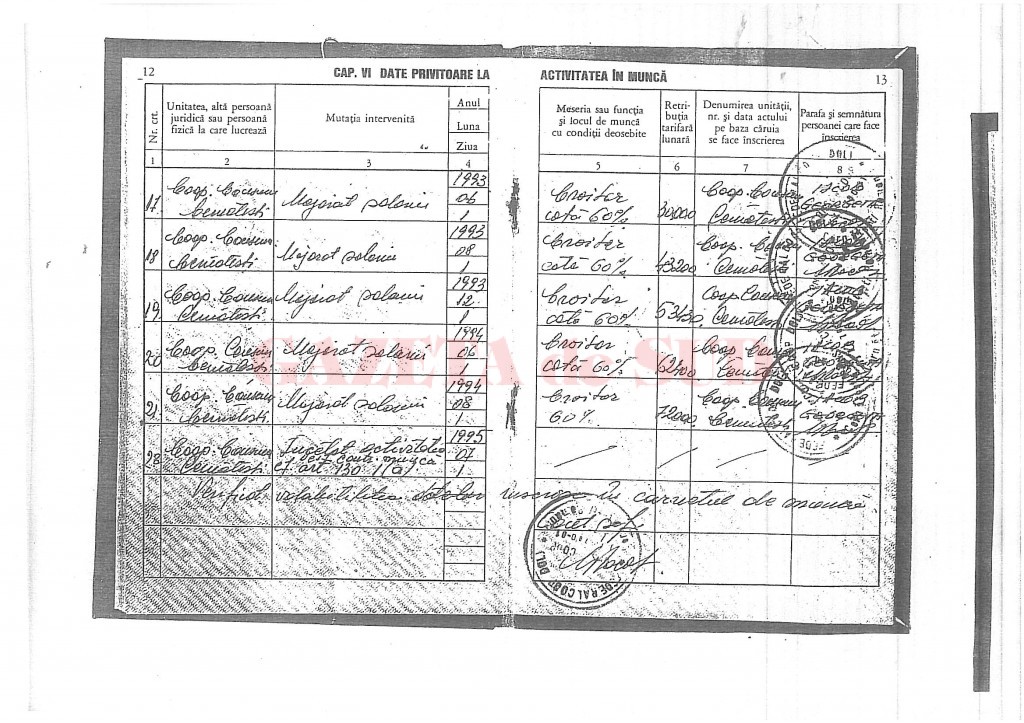 12
CAP. VI DATE PRIVITOARE LA
ACTIVITATEA ÎN MUNCĂ
13
Nr. crt.
Unitatea, altă persoană
juridică sau persoană
fizică la care lucrează
Mutația intervenită
Anul
Luna
Ziua
Meseria sau funcția
și locul de muncă
cu condiții deosebite
Retri-
buția
tarifară
lunară
Denumirea unității,
nr. și data actului
pe baza căruia
se face înscrierea
Parafa și semnătura
persoanei care face
înscrierea
1
2
3
4
5
6
7
8
17.
Coop. Consum
Cernătești
Majorat salarii
1993
06
1
Croitor
cotă 60%
Coop. Consum
Cernătești
18
Coop. Consum
Cernătești
Majorat salarii
1993
08
1
Croitor
cotă 60%
43200
Coop. Consum
Cernătești
19
Coop. Consum
Cernătești
Majorat salarii
1993
12
1
Croitor
cotă 60%
Coop. Consum
Cernătești
20
Coop. Consum
Cernătești
Majorat salarii
1994
06
1
Croitor
cotă 60%
62400
Coop. Consum
Cernătești
21.
Coop. Consum
Cernătești
Majorat salarii
1994
08
1
Croitor
60%
72000
Coop. Consum
Cernătești
Coop. Consum
Cernătești
Încetat activitatea
cf art 130
1995
07
1
Verificat valabilitatea datelor înscrise în carnetul de muncă
GAZETA de SUD
DOLJ
FEDERALCOOP DOLJ